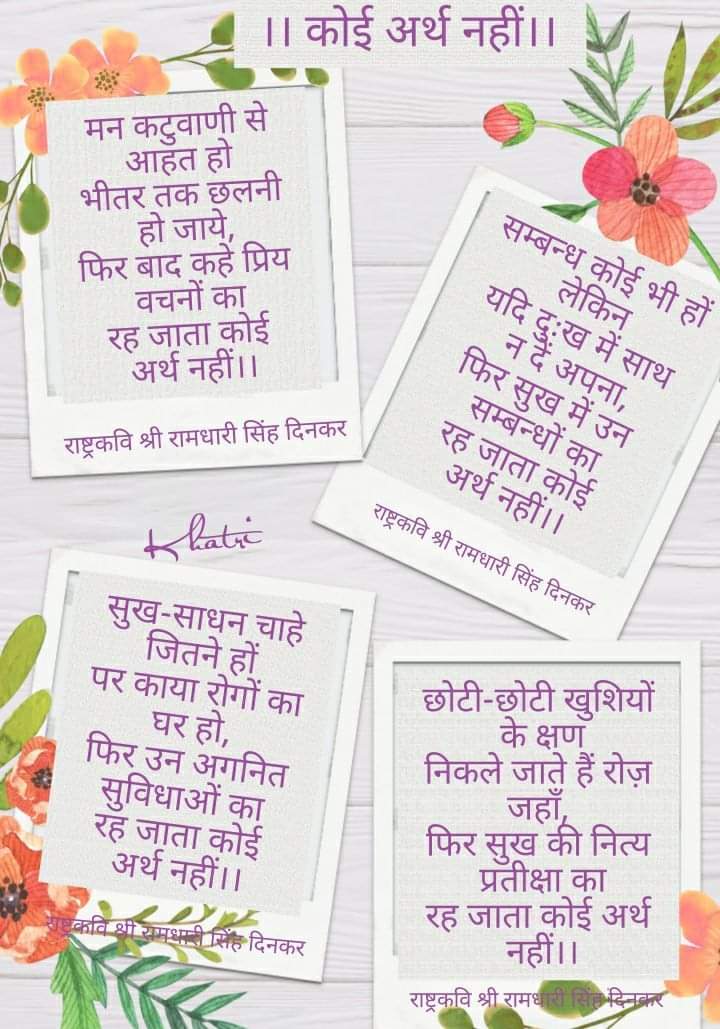 ।। कोई अर्थ नहीं।।
मन कटुवाणी से
आहत हो
भीतर तक छलनी
हो जाये,
फिर बाद कहे प्रिय
वचनों का
रह जाता कोई
अर्थ नहीं।।
राष्ट्रकवि श्री रामधारी सिंह दिनकर
सम्बन्ध कोई भी हों
लेकिन
यदि दुःख में साथ
न दें अपना,
फिर सुख में उन
सम्बन्धों का
रह जाता कोई
अर्थ नहीं।।
राष्ट्रकवि श्री रामधारी सिंह दिनकर
Khatri
सुख-साधन चाहे
जितने हों
पर काया रोगों का
घर हो,
फिर उन अगनित
सुविधाओं का
रह जाता कोई
अर्थ नहीं।।
राष्ट्रकवि श्री रामधारी सिंह दिनकर
छोटी-छोटी खुशियों
के क्षण
निकले जाते हैं रोज़
जहाँ,
फिर सुख की नित्य
प्रतीक्षा का
रह जाता कोई अर्थ
नहीं।।
राष्ट्रकवि श्री रामधारी सिंह दिनकर